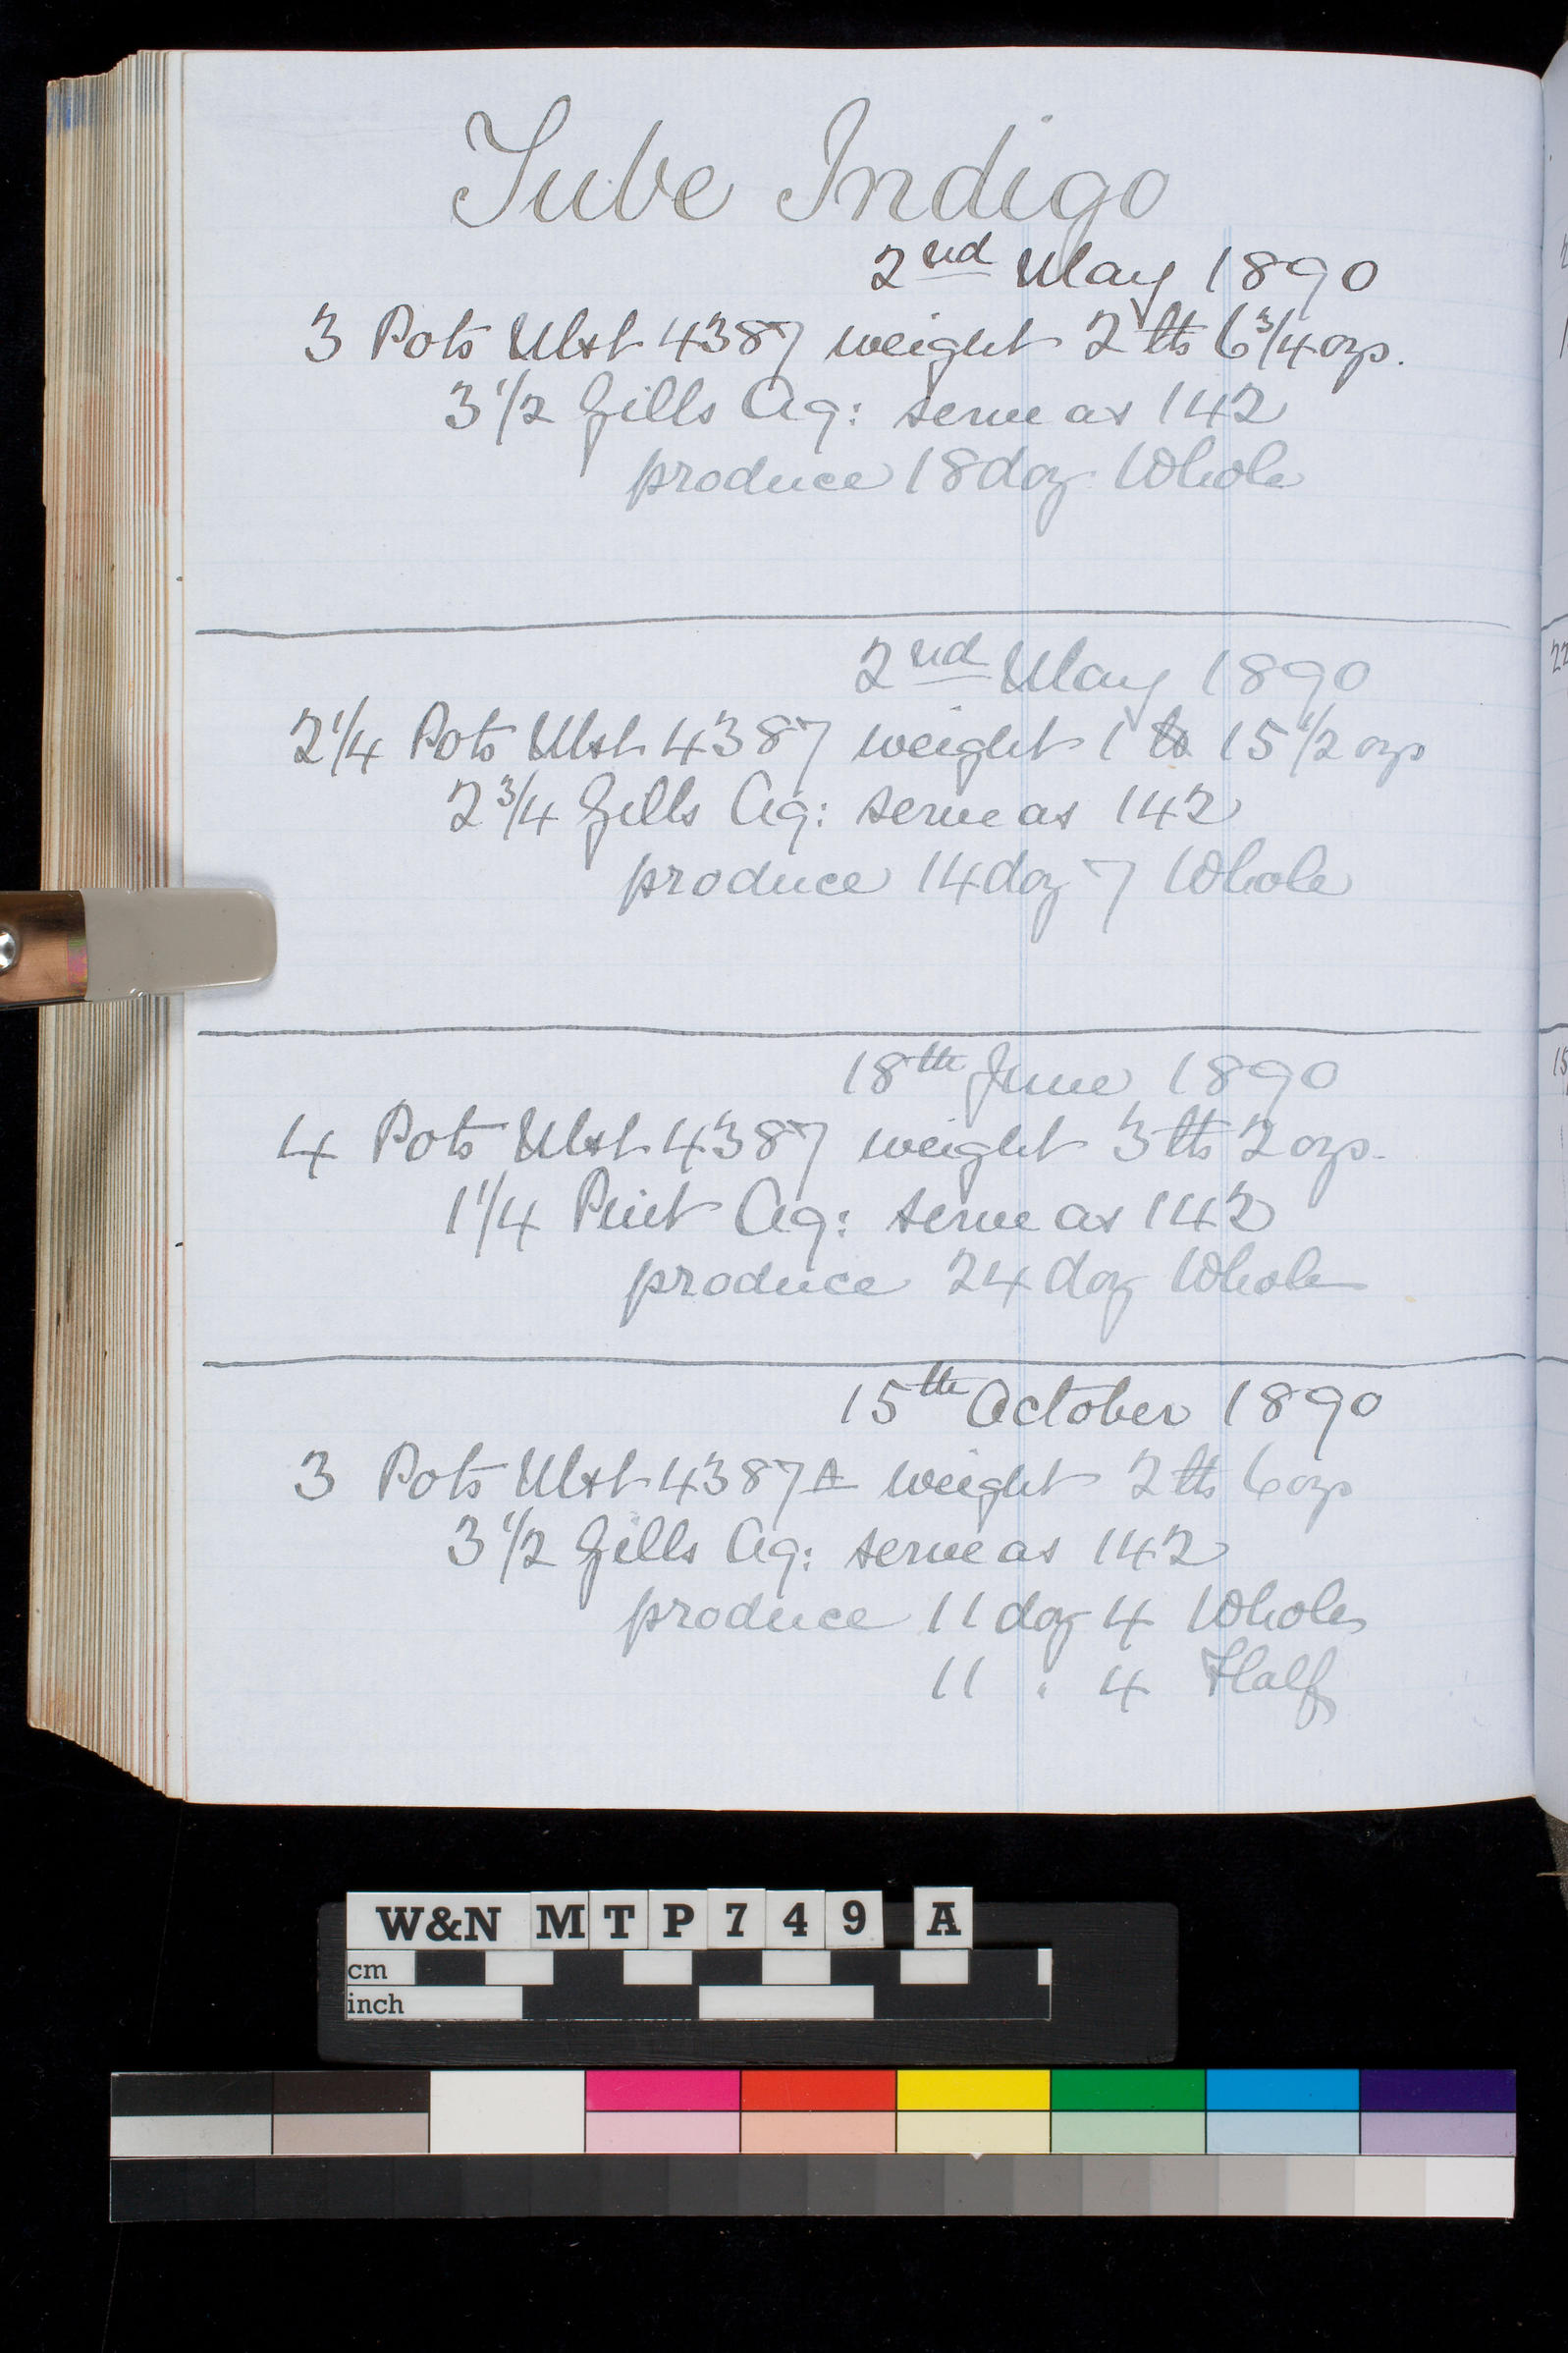 Tube Indigo
2nd May 1890
3 Pots Ulst 4387 weight 2 lbs 6 3/4 ozs.
3 1/2 Gills Aq: serve as 142
produce 18 doz Whole
2nd May 1890
2 1/4 Pots Ulst 4387 weight 1 lb 15 1/2 ozs
2 3/4 Gills Aq: serve as 142
produce 14 doz 7 Whole
18th June 1890
4 Pots Ulst 4387 weight 3 lbs 2 ozs.
1 1/4 Pint Aq: serve as 142
produce 24 doz Whole
15th October 1890
3 Pots Ulst 4387A weight 2 lbs 6 ozs
3 1/2 Gills Aq: serve as 142
produce 11 doz 4 Whole
11 " 4 Half
W&N MTP749 A
cm
inch